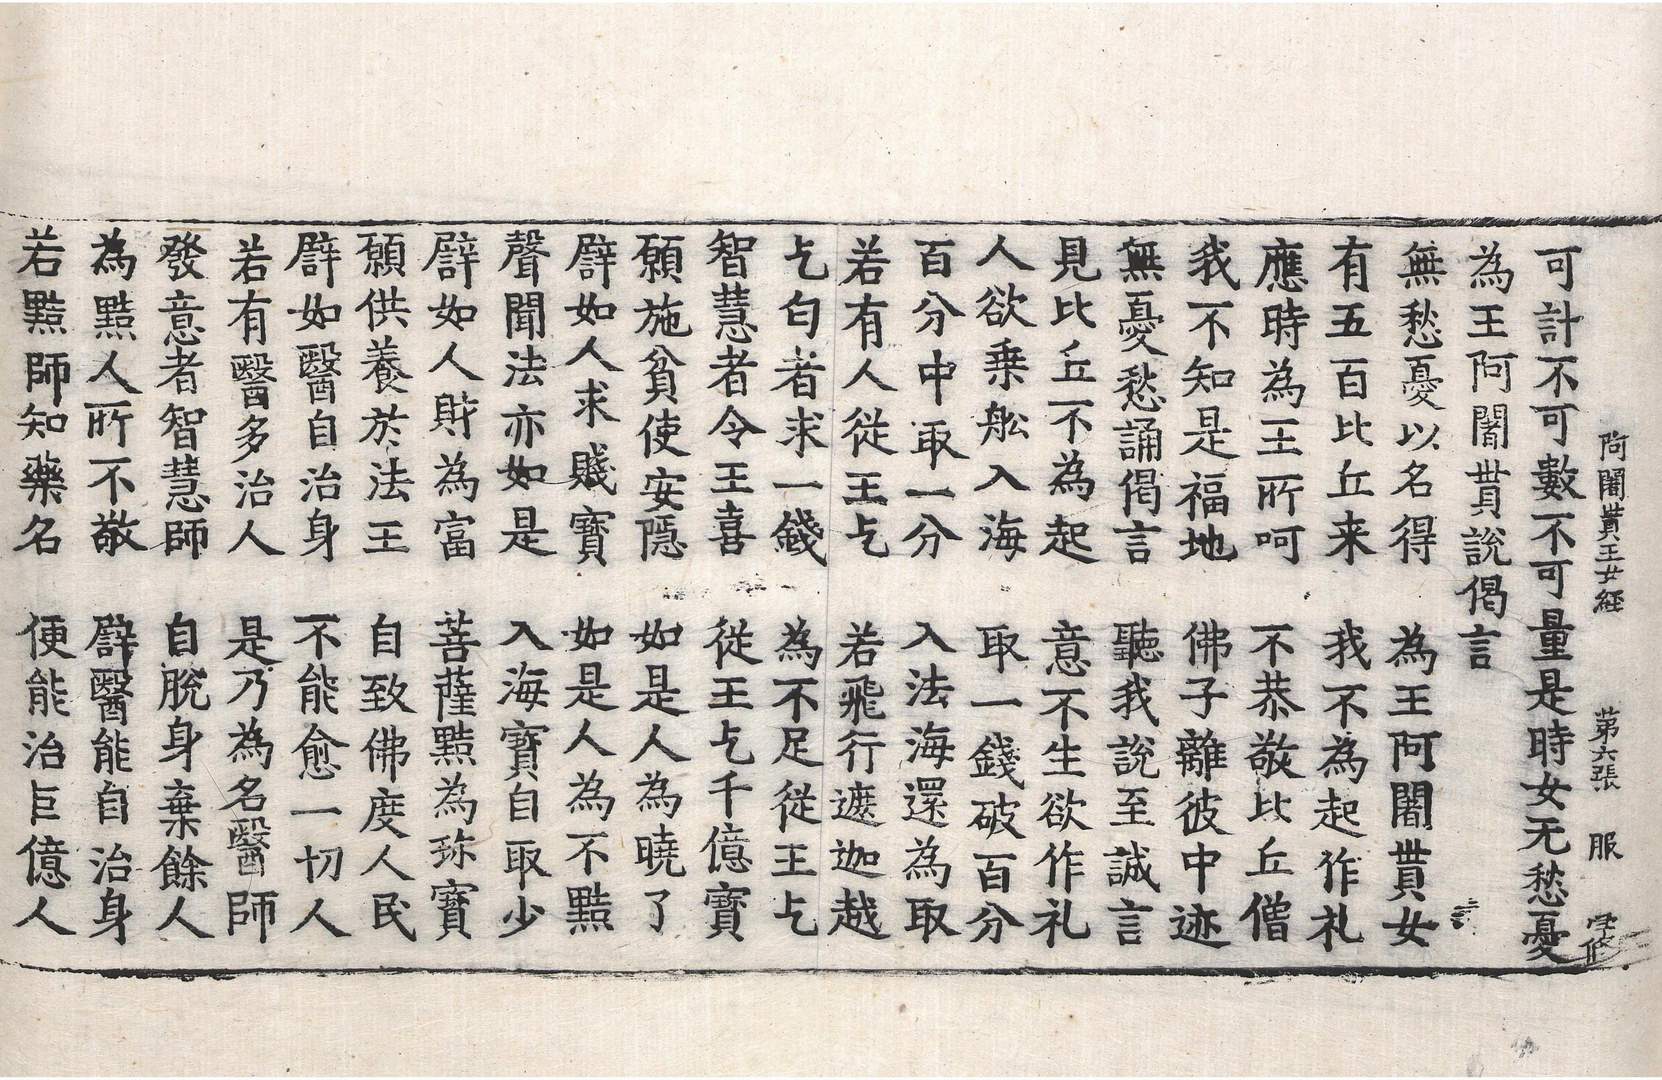 阿闍貰王女經 第六張 服 守修
可計不可數不可可量是時女无愁憂
為王阿闍貰說偈言
無愁憂以名得 為王阿闍貰女
有五百比丘来 我不為起作礼
應時為王所呵 不恭敬比丘僧
我不知是福地 佛子離彼中迹
無憂愁誦偈言 聽我說至誠言
見比丘不為起 意不生欲作礼
人欲乗舩入海 取一錢破百分
百分中取一分 入法海還為取
若有人從王乞 若飛行遮迦越
乞匂者求一錢 為不足從王乞
智慧者令王喜 從王乞千億寶
願施貧使安隱 如是人為曉了
譬如人求賤寶 如是人為不黠
聲聞法亦如是 入海寶自取少
譬如人財為富 菩薩黠為珎寶
願供養於法王 自致佛度人民
譬如醫自治身 不能愈一切人
若有醫多治人 是乃為名醫師
發意者智慧師 自脫身棄餘人
為黠人所不敬 譬醫能自治身
若黠師知藥名 便能治巨億人